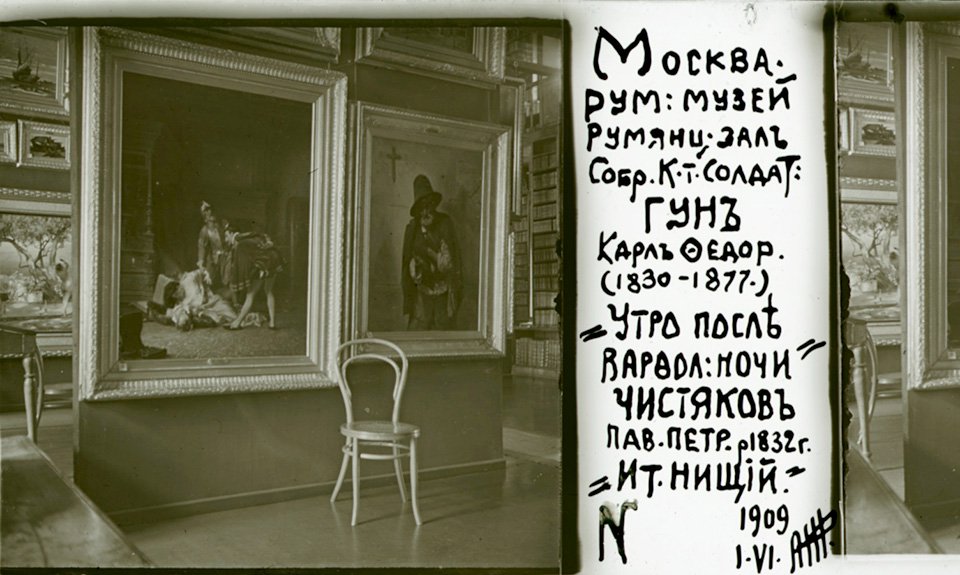 Москва.
Рум: музей
Румянц: залъ
Собр. К. Т. Солдат:
Гунъ
Карлъ Ѳедор.
(1830-1877.)
"Утро послѣ
Варѳол: ночи"
Чистяковъ
Пав. Петр. р 1832 г.
"Ит. нищій."
N
1909
1.VI.